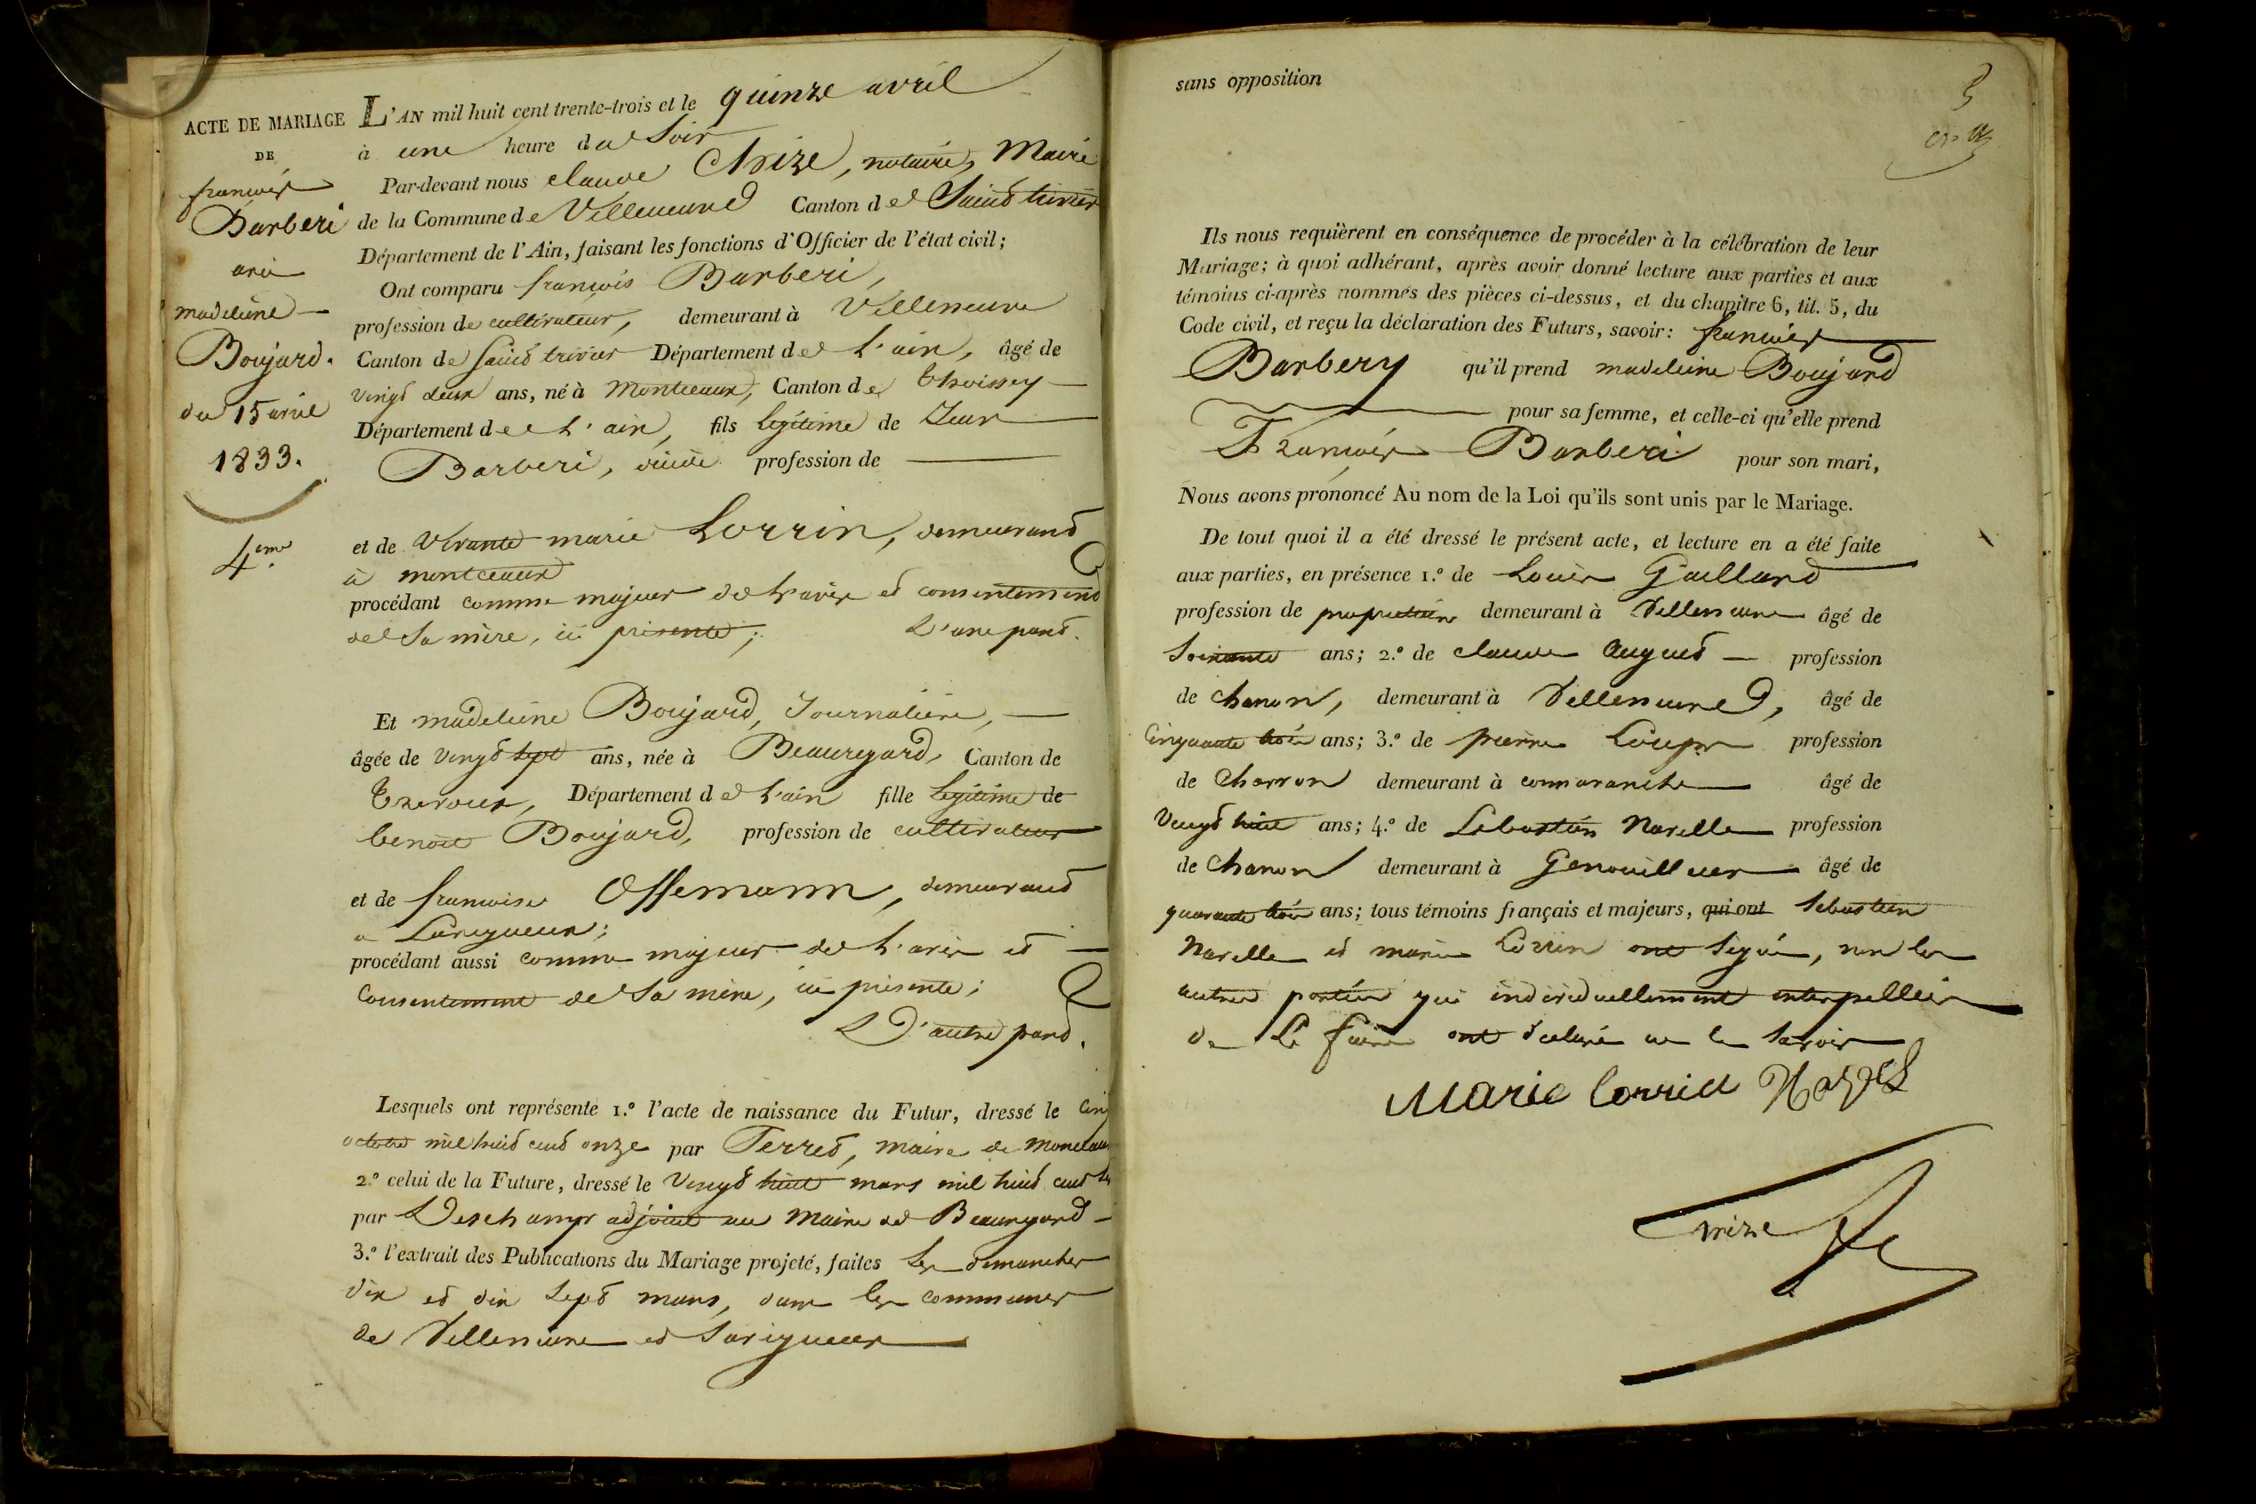 ACTE DE MARIAGE
DE
françois
Barberi
avec
madeleine
Boujard.
du 15 avril
1833.
4.eme
L'AN mil huit cent trente-trois et le quinze avril
à une heure du Soir
Par-devant nous claude Trize, notaire, Maire
de la Commune de Villeneuve Canton de Saint trivier
Département de l'Ain, faisant les fonctions d'Officier de l'état civil;
Ont comparu françois Barberi,
profession de cultivateur, demeurant à Villeneuve
Canton de Saint trivier Département de L'ain, âgé de
vingt deux ans, né à Montceaux, Canton de Thoissey
Département de L'ain, fils légitime de Jean
Barberi, profession de
et de Vivante marie Lorrin, demeurant
à montceaux
procédant comme majeur de L'avis et consentement
de Sa mère, ici présente; D'une part.
Et madeleine Boujard, Journalière,
âgée de vingt sept ans, née à Beauregard, Canton de
Trevoux, Département de L'ain fille légitime de
benoit Boujard, profession de cultivateur
et de françoise Offemann, demeurant
a Savigneux;
procédant aussi comme majeur de L'avis et
Consentement de Sa mère, ici présente;
D'autre part.
Lesquels ont représenté 1.º l'acte de naissance du Futur, dressé le Cinq
octobre mil huit cent onze par Terret, maire de Monceaux
2.º celui de la Future, dressé le Vingt huit mars mil huit cent
par Deschamps adjoint au Maire de Beauregard
3.º l'extrait des Publications du Mariage projeté, faites Les dimanches
dix et dix Sept mars, dans les communes
de Villeneuve et Savigneux
sans opposition
3
Ils nous requièrent en conséquence de procéder à la célébration de leur
Mariage; à quoi adhérant, après avoir donné lecture aux parties et aux
témoins ci-après nommés des pièces ci-dessus, et du chapitre 6, tit. 5, du
Code civil, et reçu la déclaration des Futurs, savoir: françois
Barbery qu'il prend madeleine Boujard
pour sa femme, et celle-ci qu'elle prend
François Barberi pour son mari,
Nous avons prononcé Au nom de la Loi qu'ils sont unis par le Mariage.
De tout quoi il a été dressé le présent acte, et lecture en a été faite
aux parties, en présence 1.º de Louis Gaillard
profession de propriétaire demeurant à Villeneuve âgé de
Soixante ans; 2.º de claude Auguet profession
de charron, demeurant à Villeneuve, âgé de
Cinquante trois ans; 3.º de pierre Loups profession
de Charron demeurant à connaranche âgé de
Vingt huit ans; 4.º de Sébastien Narelle profession
de Charron demeurant à Genouilleux âgé de
quarante trois ans; tous témoins français et majeurs, qui ont Sebastien
Narelle et marie Lorrin ont Signé, non les
autres parties qui individuellement interpellées
de Le faire ont déclaré ne le Savoir
Marie Lorrin
Trize